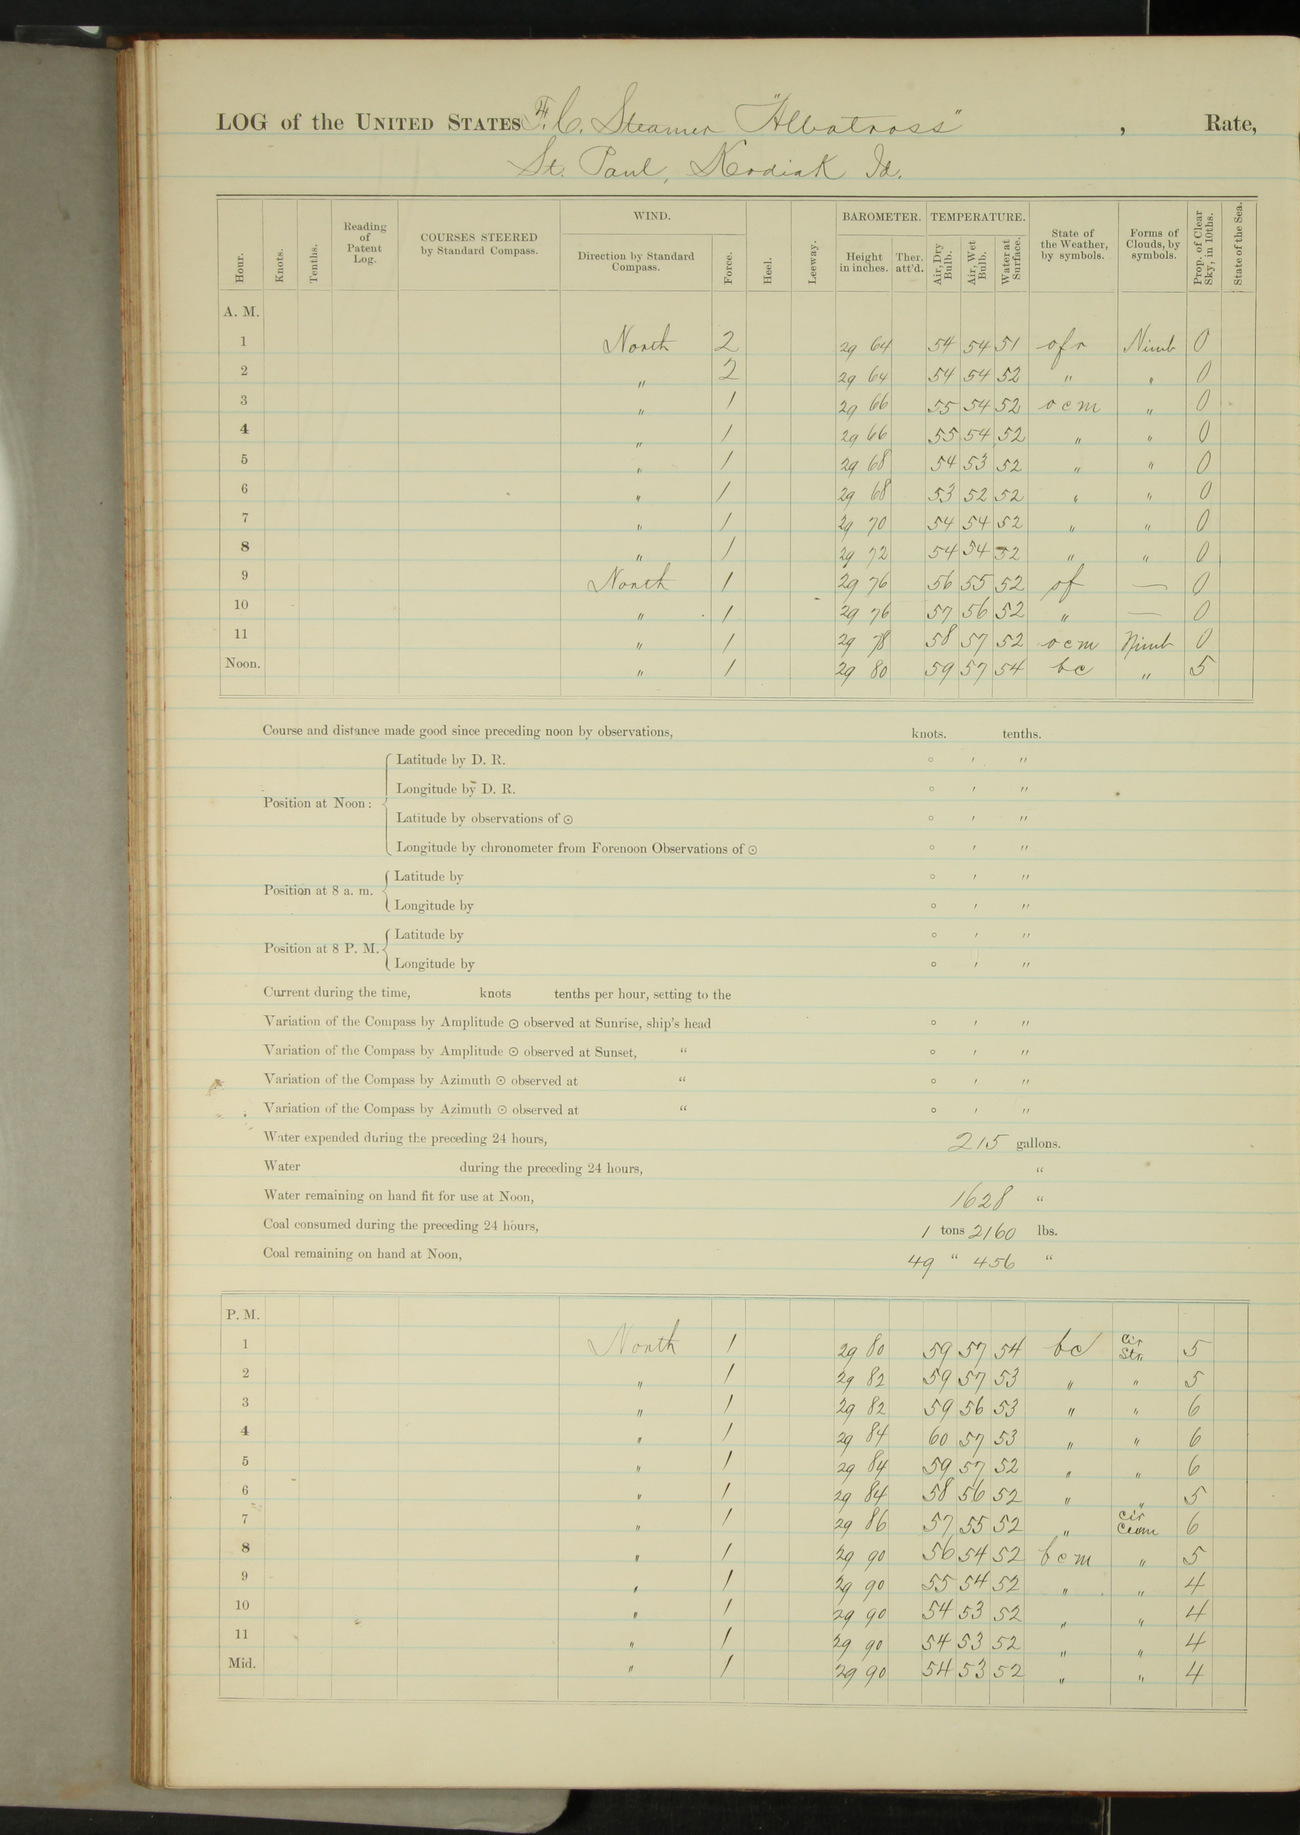 LOG of the UNITED STATES F. C. Steamer "Albatross" , Rate,
St. Paul, Kodiak Id.
Hour. Knots. Tenths. Reading of Patent Log. COURSES STEERED by Standard Compass. WIND. Direction by Standard Compass. Force. Heel. Leeway. BAROMETER. Height in inches. Ther. att'd. TEMPERATURE. Air, Dry Bulb. Air, Wet Bulb. Water at Surface. State of the Weather, by symbols. Forms of Clouds, by symbols. Prop. of Clear Sky, in 10ths. State of the Sea.
A. M.
1 North 2 29 64 54 54 51 ofr Nimb 0
2 " 2 29 64 54 54 52 " " 0
3 " 1 29 66 55 54 52 ocm " 0
4 " 1 29 66 55 54 52 " " 0
5 " 1 29 68 54 53 52 " " 0
6 " 1 29 68 53 52 52 " " 0
7 " 1 29 70 54 54 52 " " 0
8 " 1 29 72 54 54 52 " " 0
9 North 1 29 76 56 55 52 of — 0
10 " 1 29 76 57 56 52 " — 0
11 " 1 29 78 58 57 52 ocm Nimb 0
Noon. " 1 29 80 59 57 54 bc " 5
Course and distance made good since preceding noon by observations, knots. tenths.
Position at Noon:
Latitude by D. R. ° ′ ″
Longitude by D. R. ° ′ ″
Latitude by observations of ⊙ ° ′ ″
Longitude by chronometer from Forenoon Observations of ⊙ ° ′ ″
Position at 8 a. m.
Latitude by ° ′ ″
Longitude by ° ′ ″
Position at 8 P. M.
Latitude by ° ′ ″
Longitude by ° ′ ″
Current during the time, knots tenths per hour, setting to the
Variation of the Compass by Amplitude ⊙ observed at Sunrise, ship's head ° ′ ″
Variation of the Compass by Amplitude ⊙ observed at Sunset, “ ° ′ ″
Variation of the Compass by Azimuth ⊙ observed at “ ° ′ ″
Variation of the Compass by Azimuth ⊙ observed at “ ° ′ ″
Water expended during the preceding 24 hours, 215 gallons.
Water during the preceding 24 hours, “
Water remaining on hand fit for use at Noon, 1628 “
Coal consumed during the preceding 24 hours, 1 tons 2160 lbs.
Coal remaining on hand at Noon, 49 “ 456 “
P. M.
1 North 1 29 80 59 57 54 bc Cir Str. 5
2 " 1 29 82 59 57 53 " " 5
3 " 1 29 82 59 56 53 " " 6
4 " 1 29 84 60 57 53 " " 6
5 " 1 29 84 59 57 52 " " 6
6 " 1 29 84 58 56 52 " " 5
7 " 1 29 86 57 55 52 " Cir Cum 6
8 " 1 29 90 56 54 52 bcm " 5
9 " 1 29 90 55 54 52 " " 4
10 " 1 29 90 54 53 52 " " 4
11 " 1 29 90 54 53 52 " " 4
Mid. " 1 29 90 54 53 52 " " 4